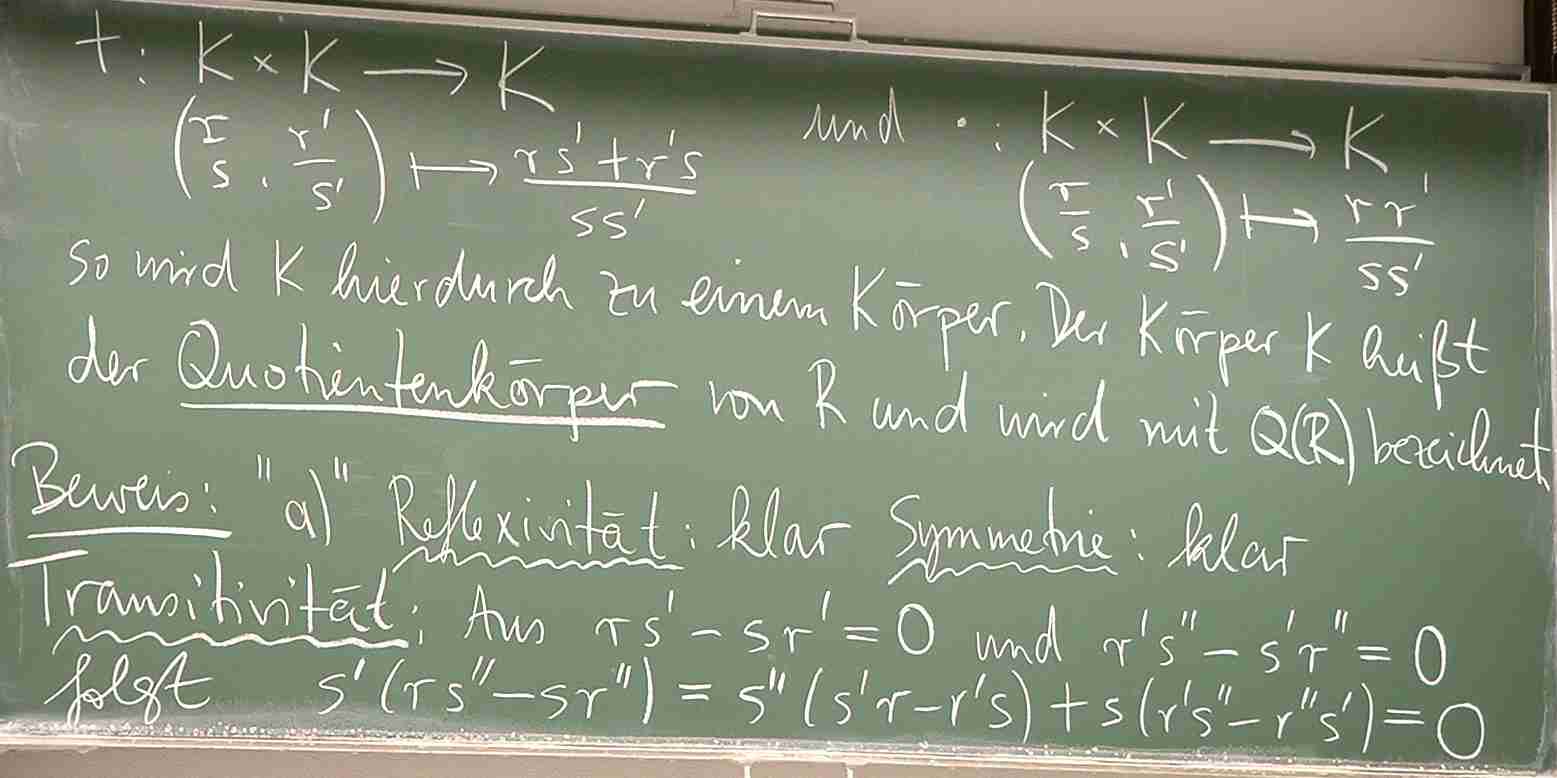 +: K × K ⟶ K und ·: K × K ⟶ K
(r/s, r'/s') ⟼ (rs' + r's)/(ss') (r/s, r'/s') ⟼ (rr')/(ss')
So wird K hierdurch zu einem Körper. Der Körper K heißt
der Quotientenkörper von R und wird mit Q(R) bezeichnet
Beweis: "a)" Reflexivität: klar Symmetrie: klar
Transitivität: Aus rs' - sr' = 0 und r's" - s'r" = 0
folgt s'(rs" - sr") = s"(s'r - r's) + s(r's" - r"s') = 0